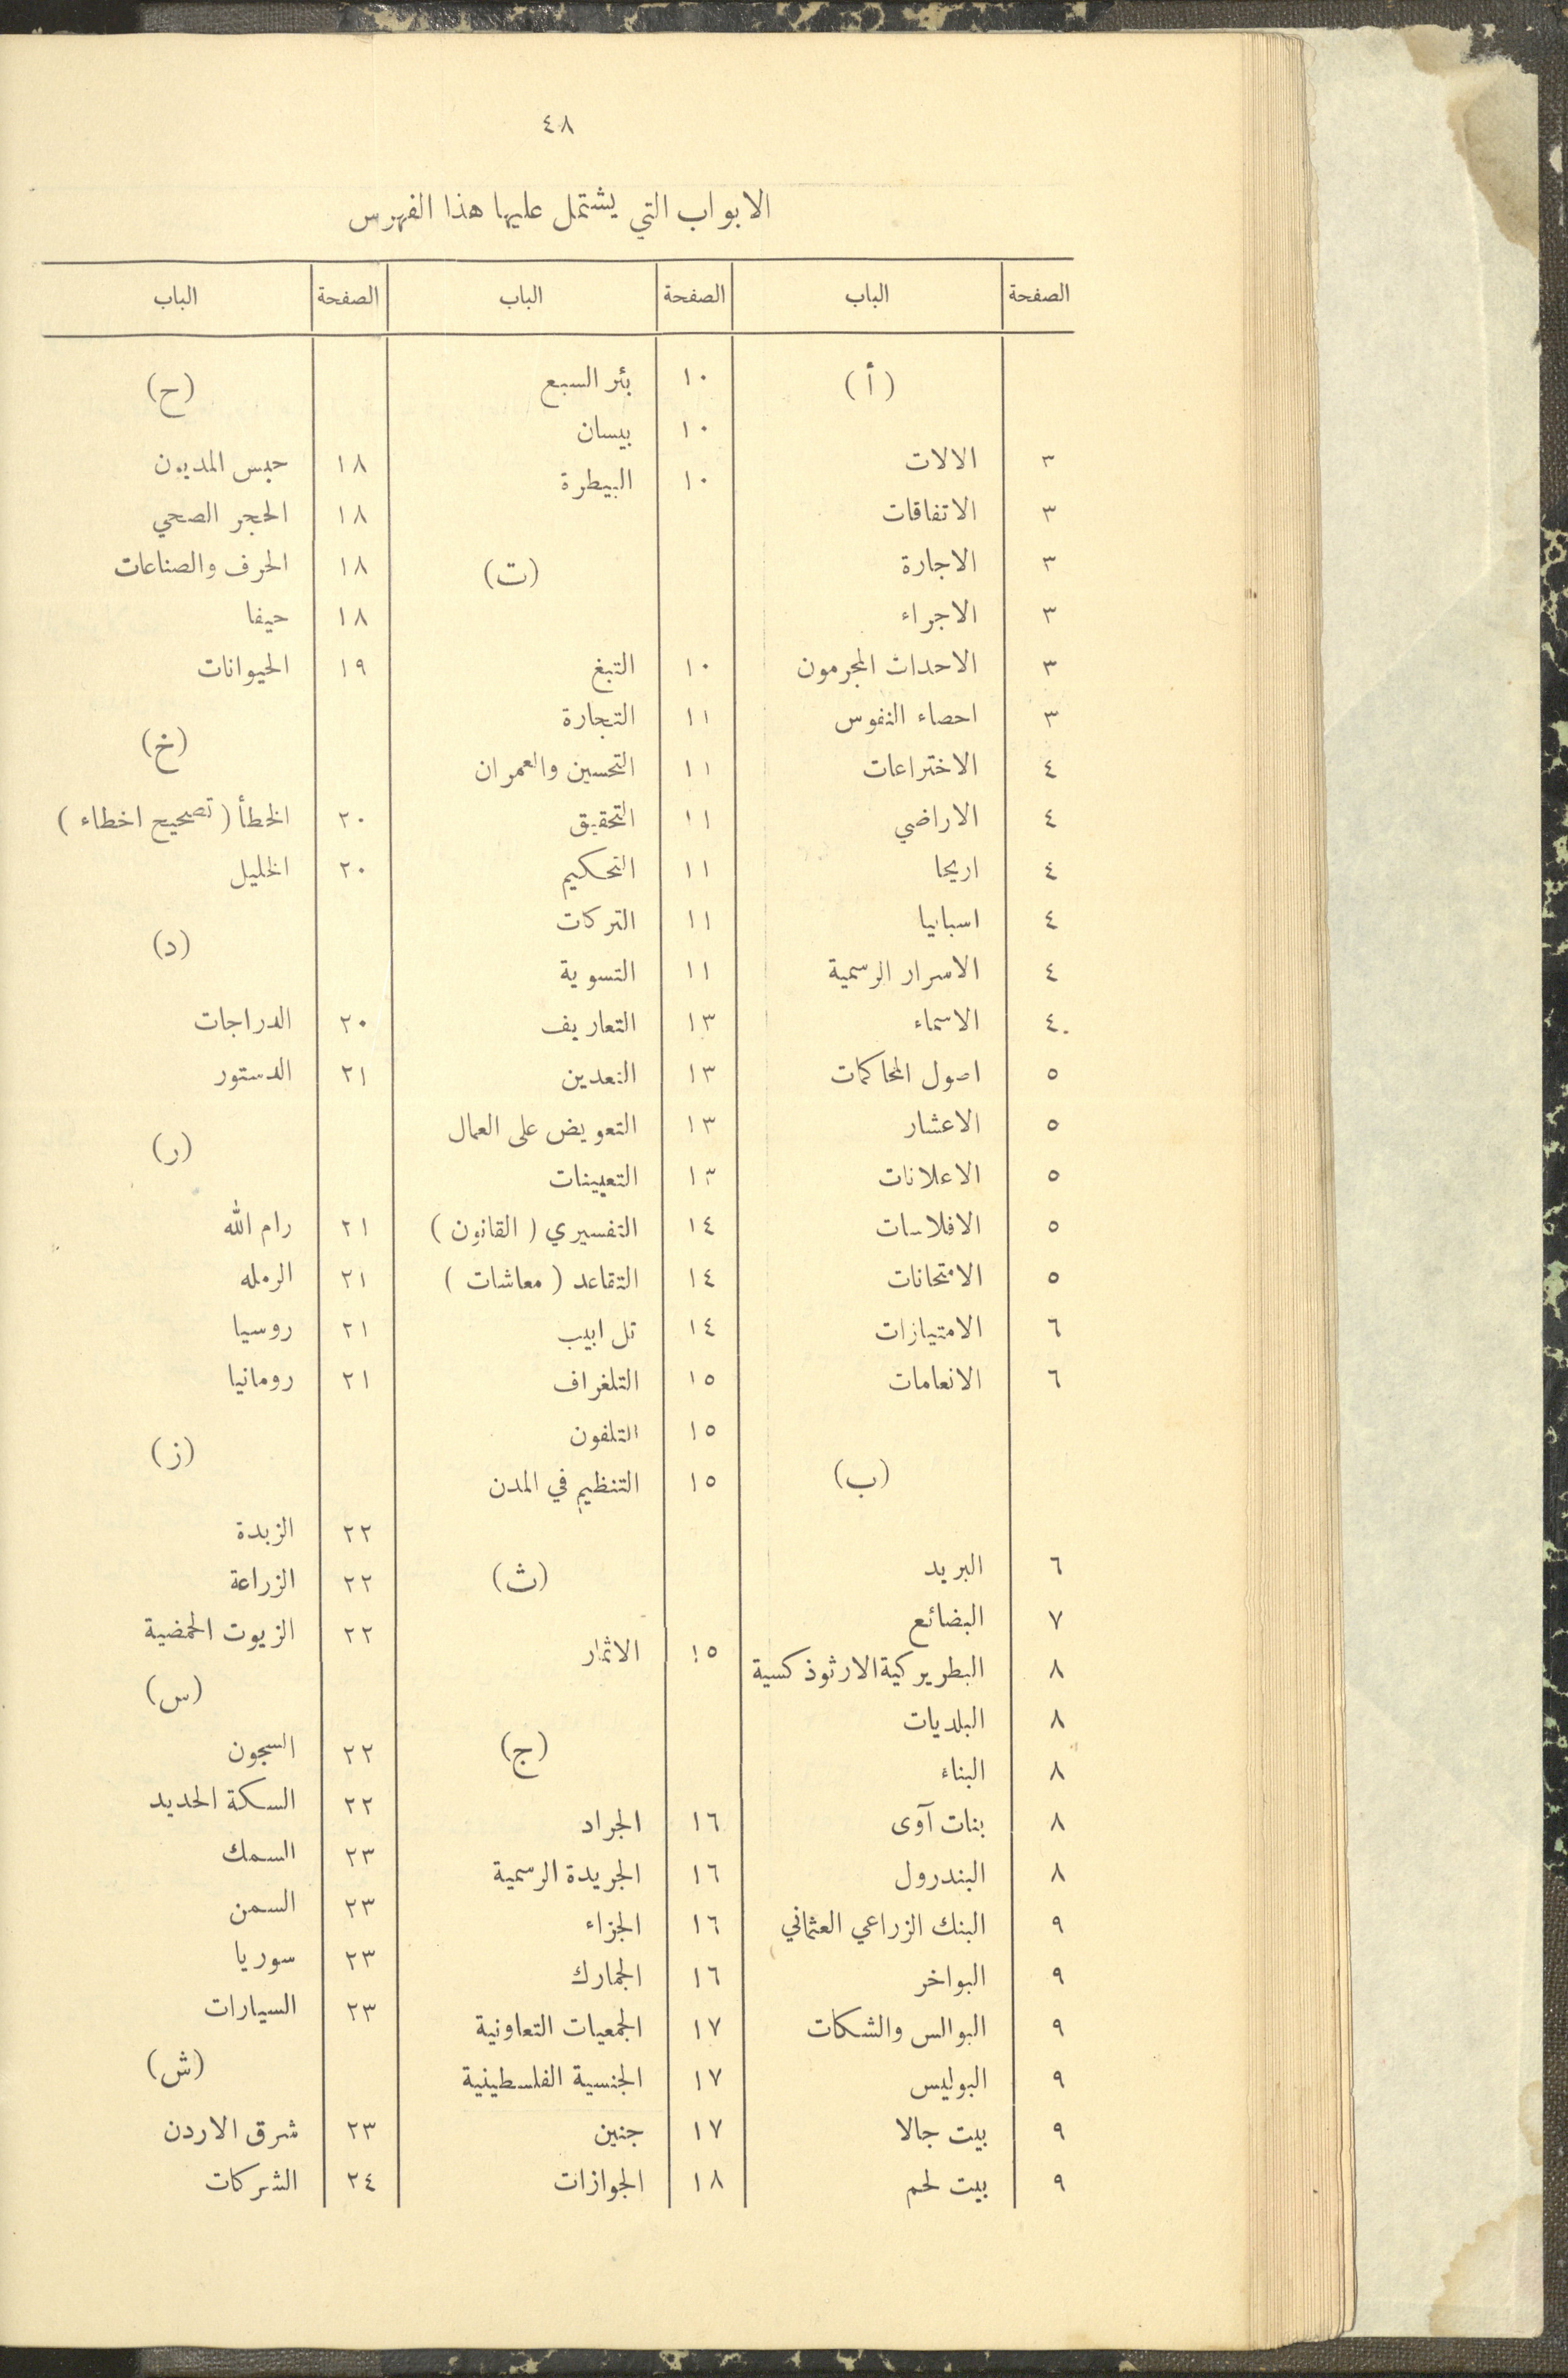 ٤٨
الابواب التي يشتمل عليها هذا الفهرس
الصفحة الباب الصفحة الباب الصفحة الباب
(أ)
٣ الالات
٣ الاتفاقات
٣ الاجارة
٣ الاجراء
٣ الاحداث المجرمون
٣ احصاء النفوس
٤ الاختراعات
٤ الاراضي
٤ اريحا
٤ اسبانيا
٤ الاسرار الرسمية
٤ الاسماء
٥ اصول المحاكمات
٥ الاعشار
٥ الاعلانات
٥ الافلاسات
٥ الامتحانات
٦ الامتيازات
٦ الانعامات
(ب)
٦ البريد
٧ البضائع
٨ البطريركية الارثوذكسية
٨ البلديات
٨ البناء
٨ بنات آوى
٨ البندرول
٩ البنك الزراعي العثماني
٩ البواخر
٩ البوالس والشكات
٩ البوليس
٩ بيت جالا
٩ بيت لحم
١٠ بئر السبع
١٠ بيسان
١٠ البيطرة
(ت)
١٠ التبغ
١١ التجارة
١١ التحسين والعمران
١١ التحقيق
١١ التحكيم
١١ التركات
١١ التسوية
١٣ التعاريف
١٣ التعدين
١٣ التعويض على العمال
١٣ التعيينات
١٤ التفسيري ( القانون )
١٤ التقاعد ( معاشات )
١٤ تل ابيب
١٥ التلغراف
١٥ التلفون
١٥ التنظيم في المدن
(ث)
١٥ الاثمار
(ج)
١٦ الجراد
١٦ الجريدة الرسمية
١٦ الجزاء
١٦ الجمارك
١٧ الجمعيات التعاونية
١٧ الجنسية الفلسطينية
١٧ جنين
١٨ الجوازات
(ح)
١٨ حبس المديون
١٨ الحجر الصحي
١٨ الحرف والصناعات
١٨ حيفا
١٩ الحيوانات
(خ)
٢٠ الخطأ ( تصحيح اخطاء )
٢٠ الخليل
(د)
٢٠ الدراجات
٢١ الدستور
(ر)
٢١ رام الله
٢١ الرمله
٢١ روسيا
٢١ رومانيا
(ز)
٢٢ الزبدة
٢٢ الزراعة
٢٢ الزيوت الحمضية
(س)
٢٢ السجون
٢٢ السكة الحديد
٢٣ السمك
٢٣ السمن
٢٣ سوريا
٢٣ السيارات
(ش)
٢٣ شرق الاردن
٢٤ الشركات